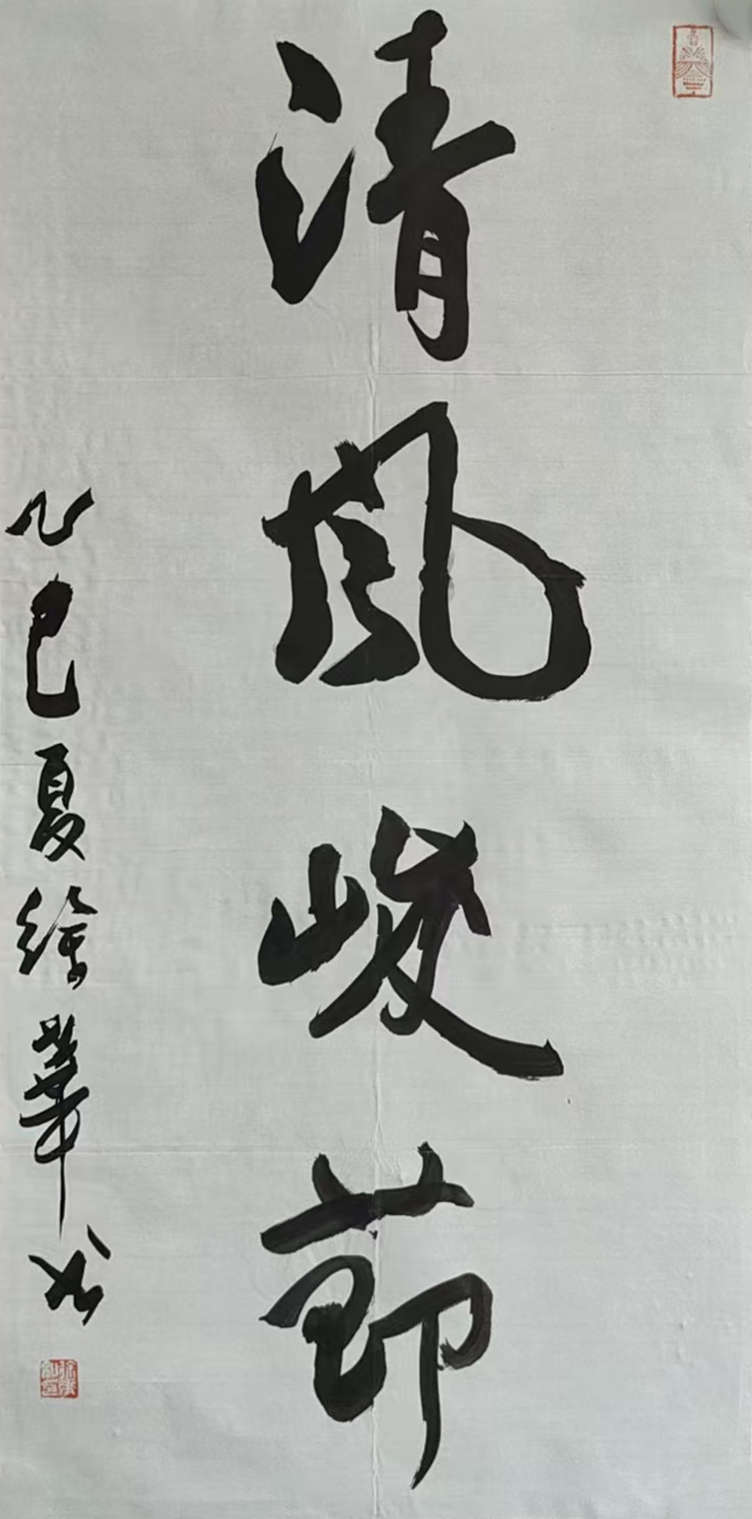 清風峻節
乙巳夏徐華书